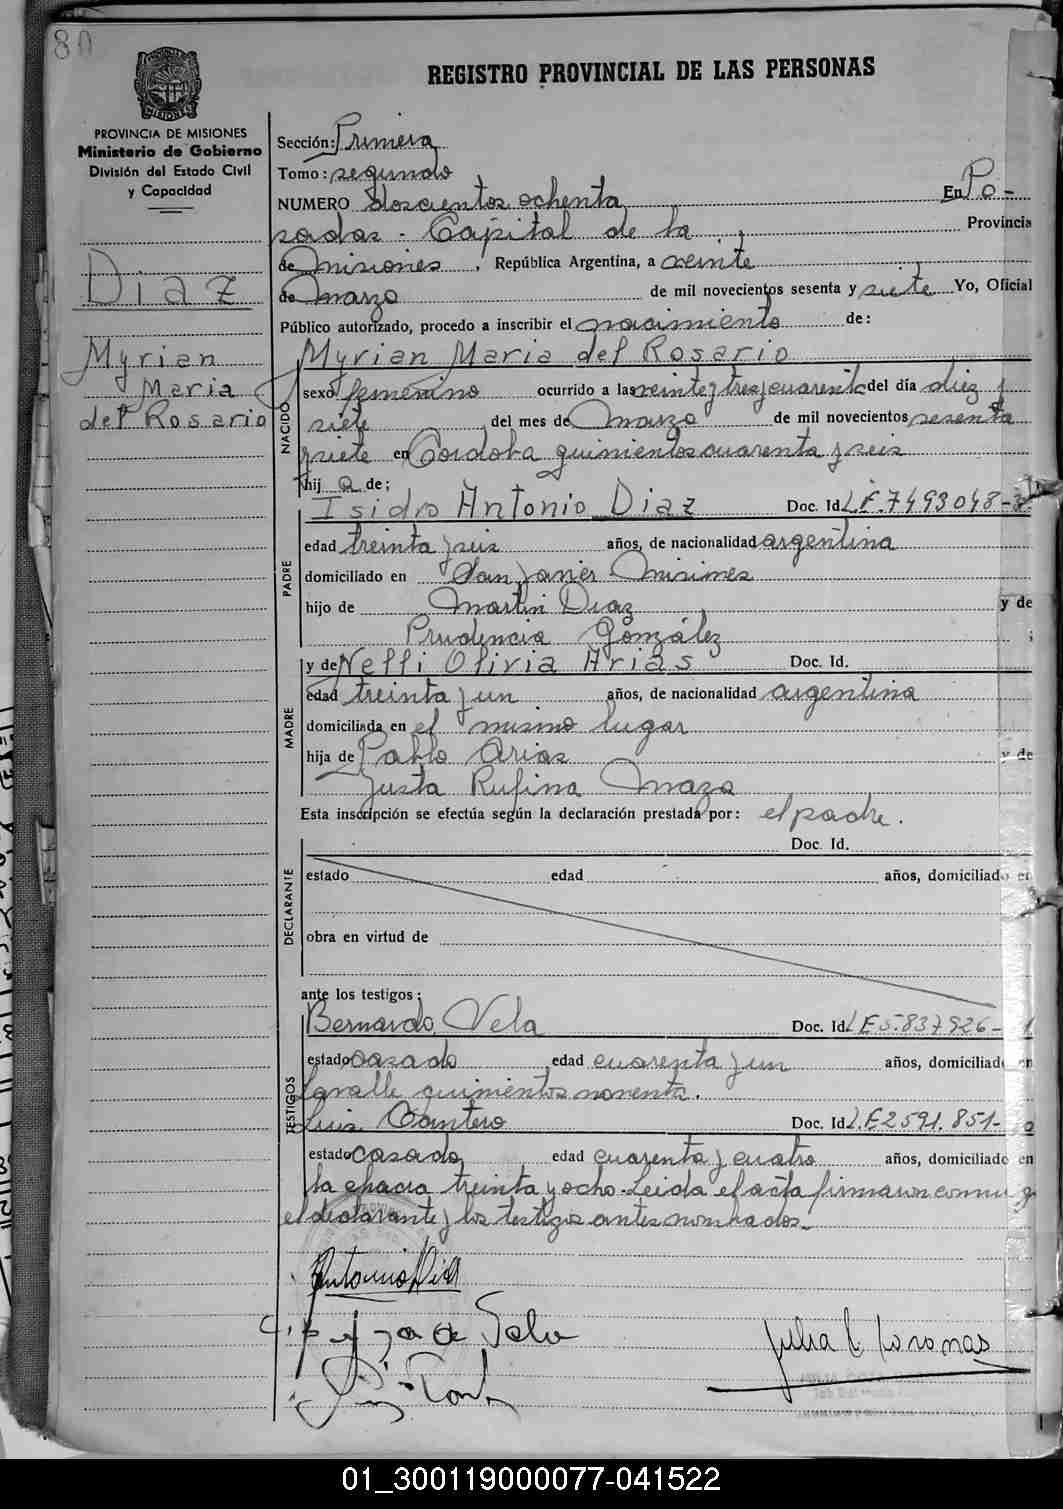 80
REGISTRO PROVINCIAL DE LAS PERSONAS
PROVINCIA DE MISIONES
Ministerio de Gobierno
División del Estado Civil
y Capacidad
Diaz
Myrian
Maria
del Rosario
Sección: Primera
Tomo: segundo
NUMERO doscientos ochenta En Po-
sadas - Capital de la Provincia
de Misiones, República Argentina, a veinte
de Marzo de mil novecientos sesenta y siete Yo, Oficial
Público autorizado, procedo a inscribir el nacimiento de:
Myrian Maria del Rosario
NACIDO
sexo femenino ocurrido a las veinte y tres y cuarenta del día diez y
siete del mes de Marzo de mil novecientos sesenta
y siete en Cordoba quinientos cuarenta y seis
hij a de:
PADRE
Isidro Antonio Diaz Doc. Id. L.E. 7493048-
edad treinta y seis años, de nacionalidad argentina
domiciliado en San Javier Misiones
hijo de Martin Diaz y de
Prudencia González ;
MADRE
y de Nelli Olivia Arias Doc. Id.
edad treinta y un años, de nacionalidad argentina
domiciliada en el mismo lugar
hija de Pablo Arias y de
Justa Rufina Maza
Esta inscripción se efectúa según la declaración prestada por: el padre.
DECLARANTE
Doc. Id.
estado edad años, domiciliado en
obra en virtud de
ante los testigos:
TESTIGOS
Bernardo Vela Doc. Id. L E 5.837926-
estado casado edad cuarenta y un años, domiciliado en
Lavalle quinientos noventa.
Luis Cantero Doc. Id. L.E 2591.851-
estado casado edad cuarenta y cuatro años, domiciliado en
la chacra treinta y ocho - Leida el acta firmaron conmigo
el declarante y los testigos antes nombrados-
Antonio Diaz
01_300119000077-041522